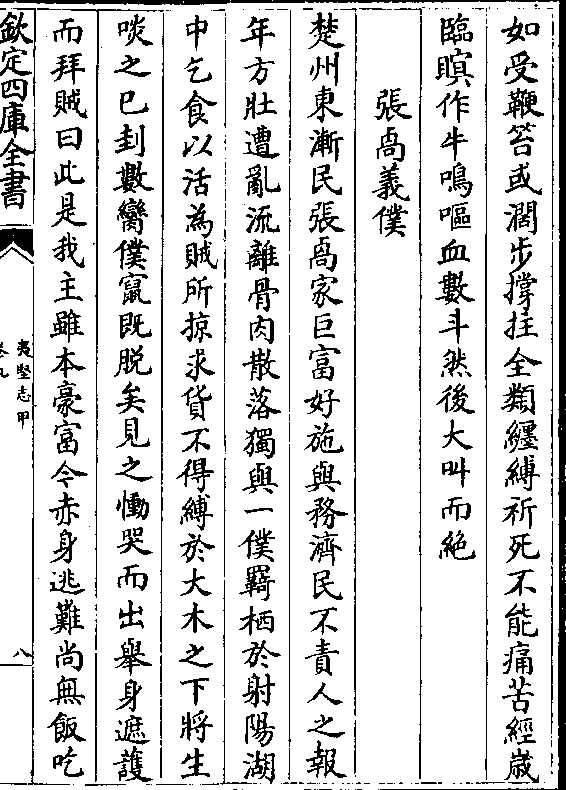 如受鞭笞或濶步撐拄全類纏縛祈死不能痛苦經歲
臨瞑作牛鳴嘔血數斗然後大叫而絶
張卨義僕
楚州東漸民張卨家巨富好施與務濟民不責人之報
年方壯遭亂流離骨肉散落獨與一僕羇栖於射陽湖
中乞食以活為賊所掠求貨不得縛於大木之下將生
啖之已刲數臠僕竄既脱矣見之慟哭而出舉身遮護
而拜賊曰此是我主雖本豪富今赤身逃難尚無飯吃
欽定四庫全書
夷堅志甲
卷九
八